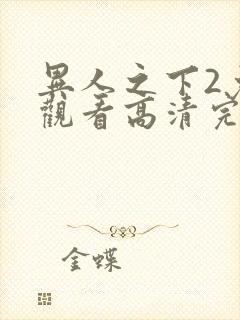 異人之下2
觀看高清完
金蝶